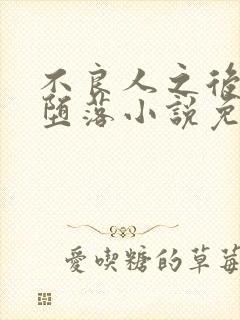 不良人之後
墮落小說免
愛喫糖的草莓